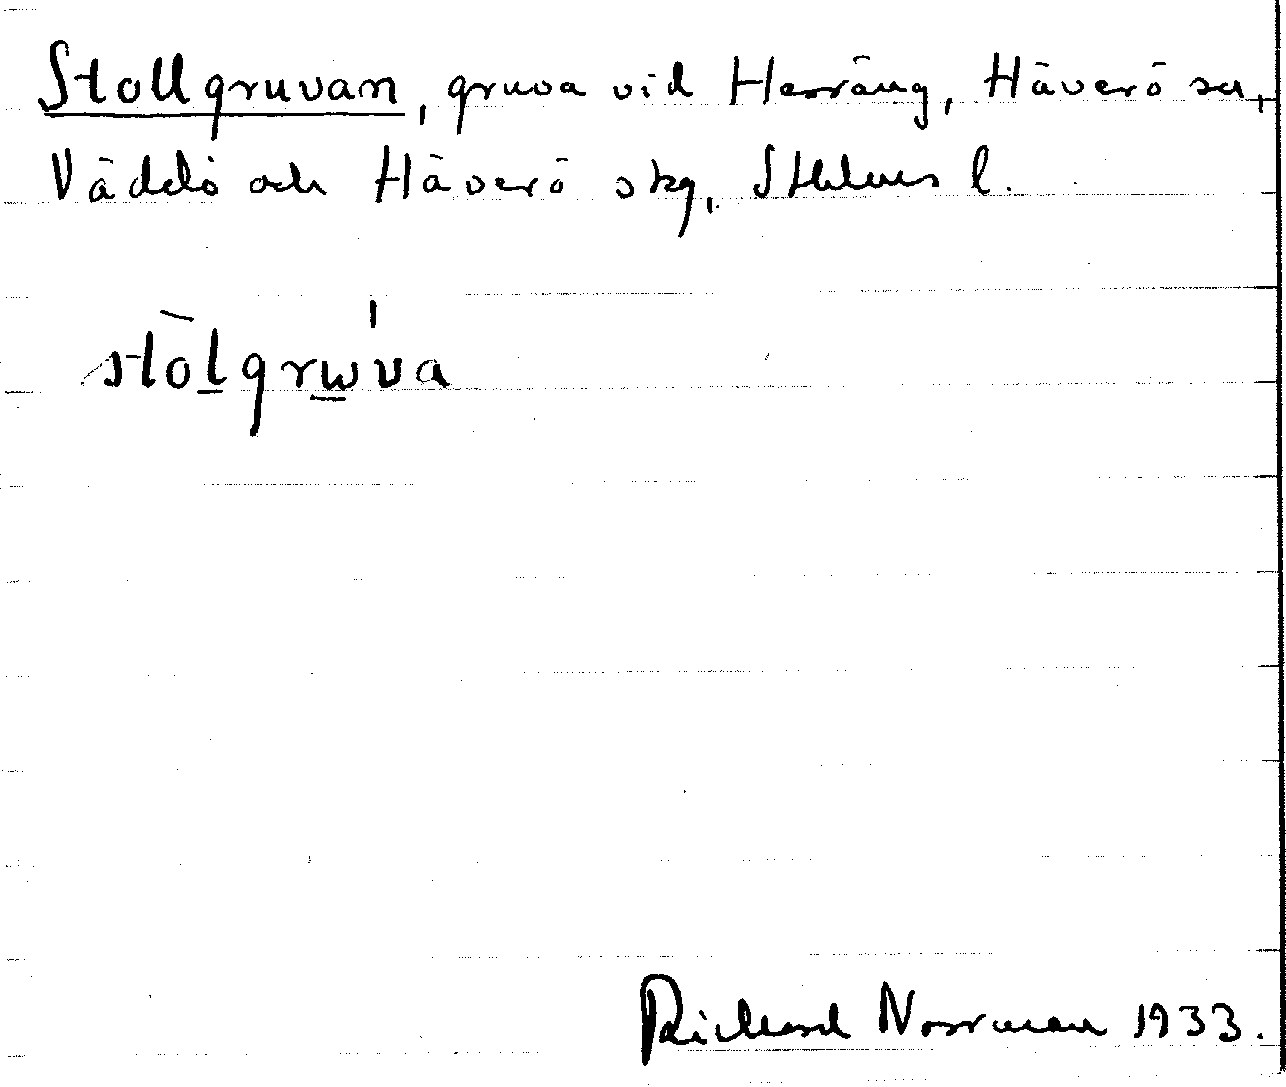 Stollgruvan, gruva vid Herräng, Häverö sn,
Väddö och Häverö skg, Sthlms l.
stòlgrɯ́va
Richard Norrman 1933.